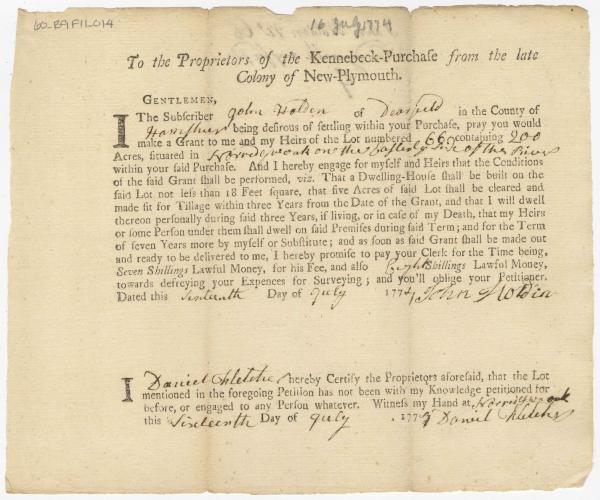 60-B9F1L014
16 July 1774
To the Proprietors of the Kennebeck-Purchase from the late
Colony of New-Plymouth.
GENTLEMEN,
I The Subscriber John Holden of Dearfield in the County of
Hampshire being desirous of settling within your Purchase, pray you would
make a Grant to me and my Heirs of the Lot numbered 660 containing 200
Acres, situated in Norridgewoak on the Easterly Side of the River
within your said Purchase. And I hereby engage for myself and Heirs that the Conditions
of the said Grant shall be performed, viz. That a Dwelling-House shall be built on the
said Lot not less than 18 Feet square, that five Acres of said Lot shall be cleared and
made fit for Tillage within three Years from the Date of the Grant, and that I will dwell
thereon personally during said three Years, if living, or in case of my Death, that my Heirs
or some Person under them shall dwell on said Premises during said Term; and for the Term
of seven Years more by myself or Substitute; and as soon as said Grant shall be made out
and ready to be delivered to me, I hereby promise to pay your Clerk for the Time being,
Seven Shillings Lawful Money, for his Fee, and also Eight Shillings Lawful Money,
towards defreying your Expences for Surveying; and you'll oblige your Petitioner.
Dated this Sixteenth Day of July 1774 John Holdin
I Daniel Fletcher hereby Certify the Proprietors aforesaid, that the Lot
mentioned in the foregoing Petition has not been with my Knowledge petitioned for
before, or engaged to any Person whatever. Witness my Hand at Norridgwoak
this Sixteenth Day of July 1774 Daniel Fletcher